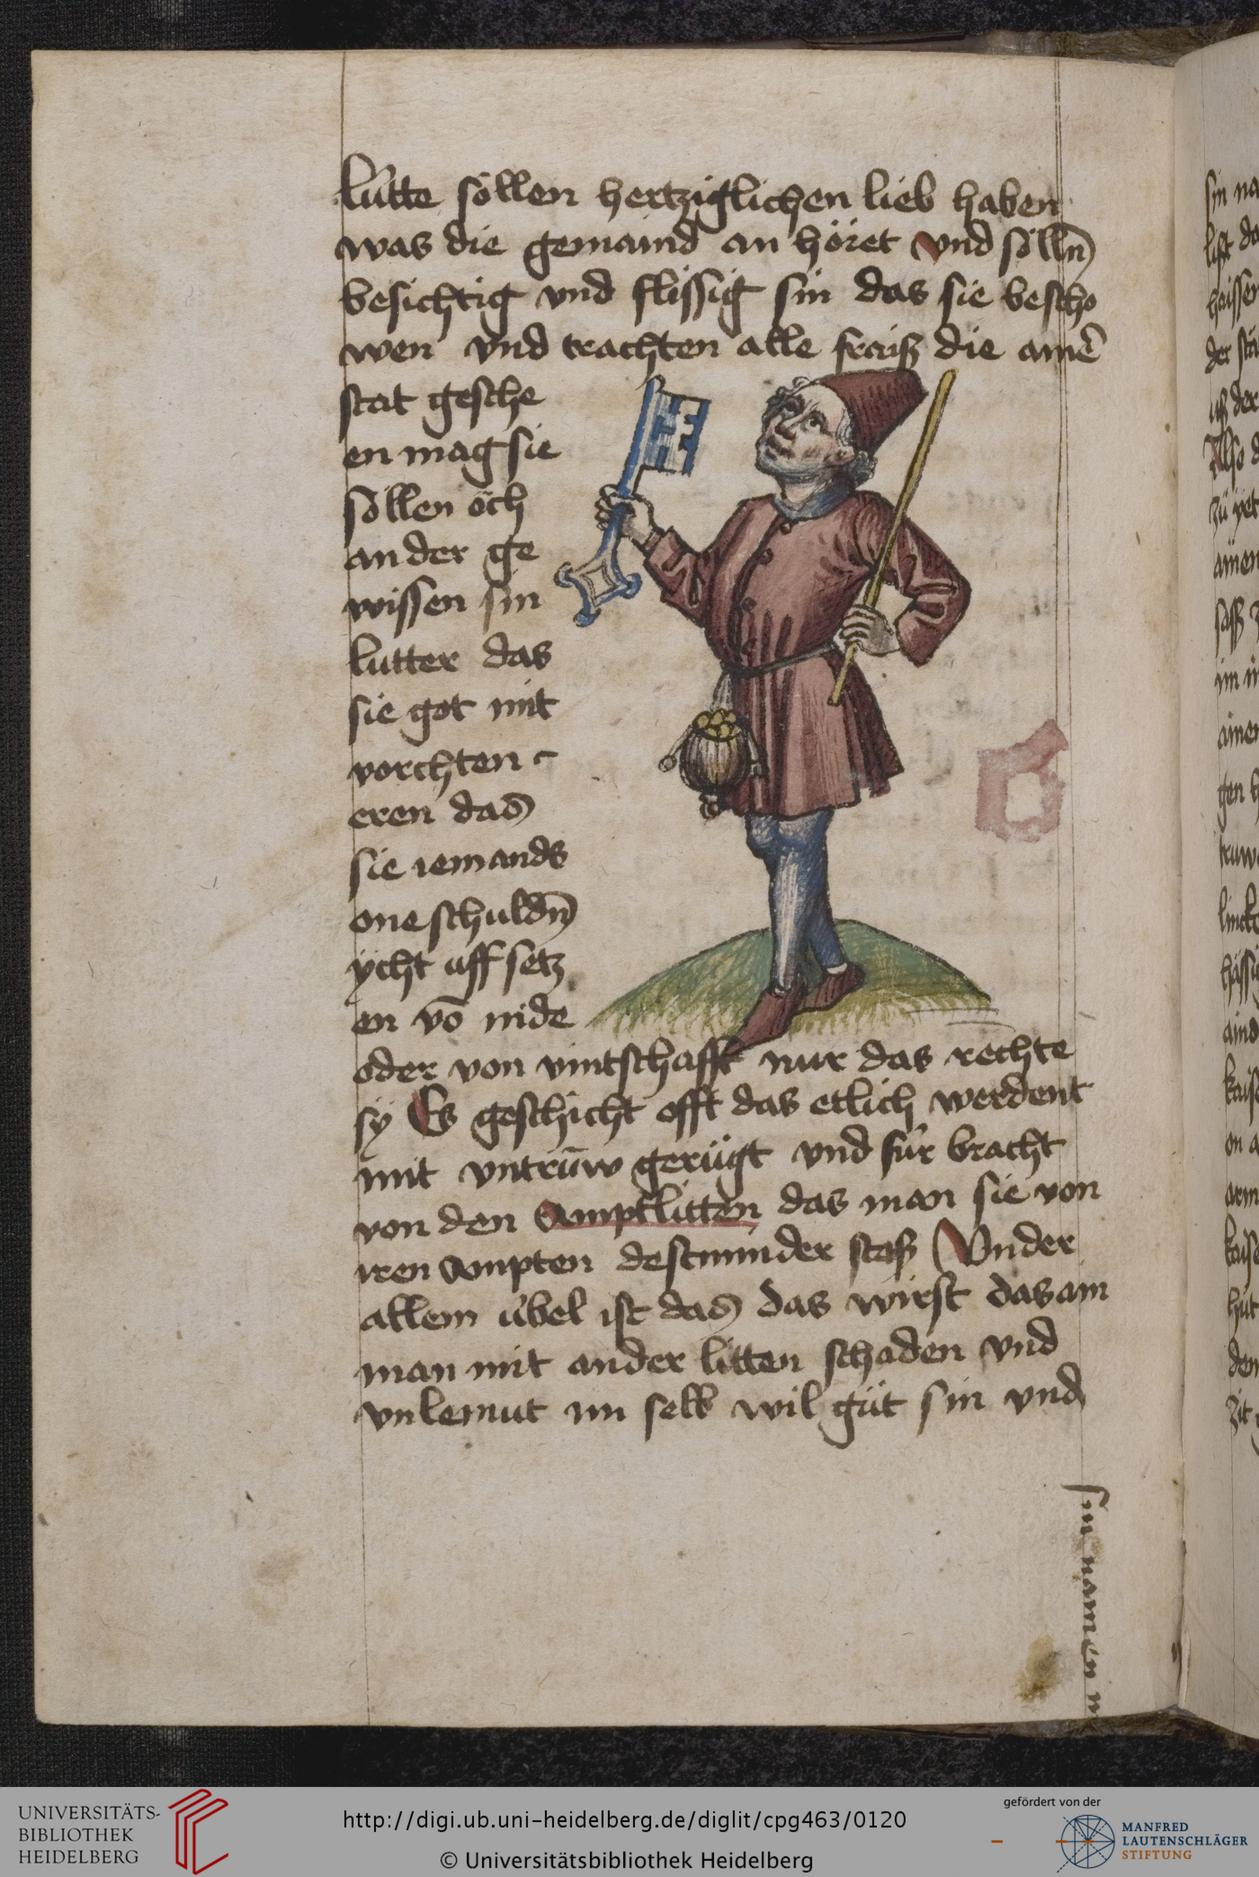 lútte söllen hertziglichen lieb haben
was die gemaind an höret vnd sölln̄
besichtig vnd flissig sin das sie bescho
wen vnd trachten alle fraiß die ainē
stat gesche
en mag sie
söllen öch
an der ge
wissen sin
lutter das
sie got mit
vorchten
eren das
sie iemands
one schuldn̄
ÿcht uff setz
en võ nide
oder von vintschafft nur das rechte
sÿ Es geschicht offt das etlich werdent
mit vntrüw gerügt vnd für bracht
von den Amptlitten das man sie von
iren Ampten destminder stoß Vnder
allem úbel ist das das wirst das ain
man mit ander litten schaden vnd
vnlemut im selb wil güt sin vnd
sin namen
UNIVERSITÄTS-
BIBLIOTHEK
HEIDELBERG
http://digi.ub.uni-heidelberg.de/diglit/cpg463/0120
© Universitätsbibliothek Heidelberg
gefördert von der
MANFRED
LAUTENSCHLÄGER
STIFTUNG